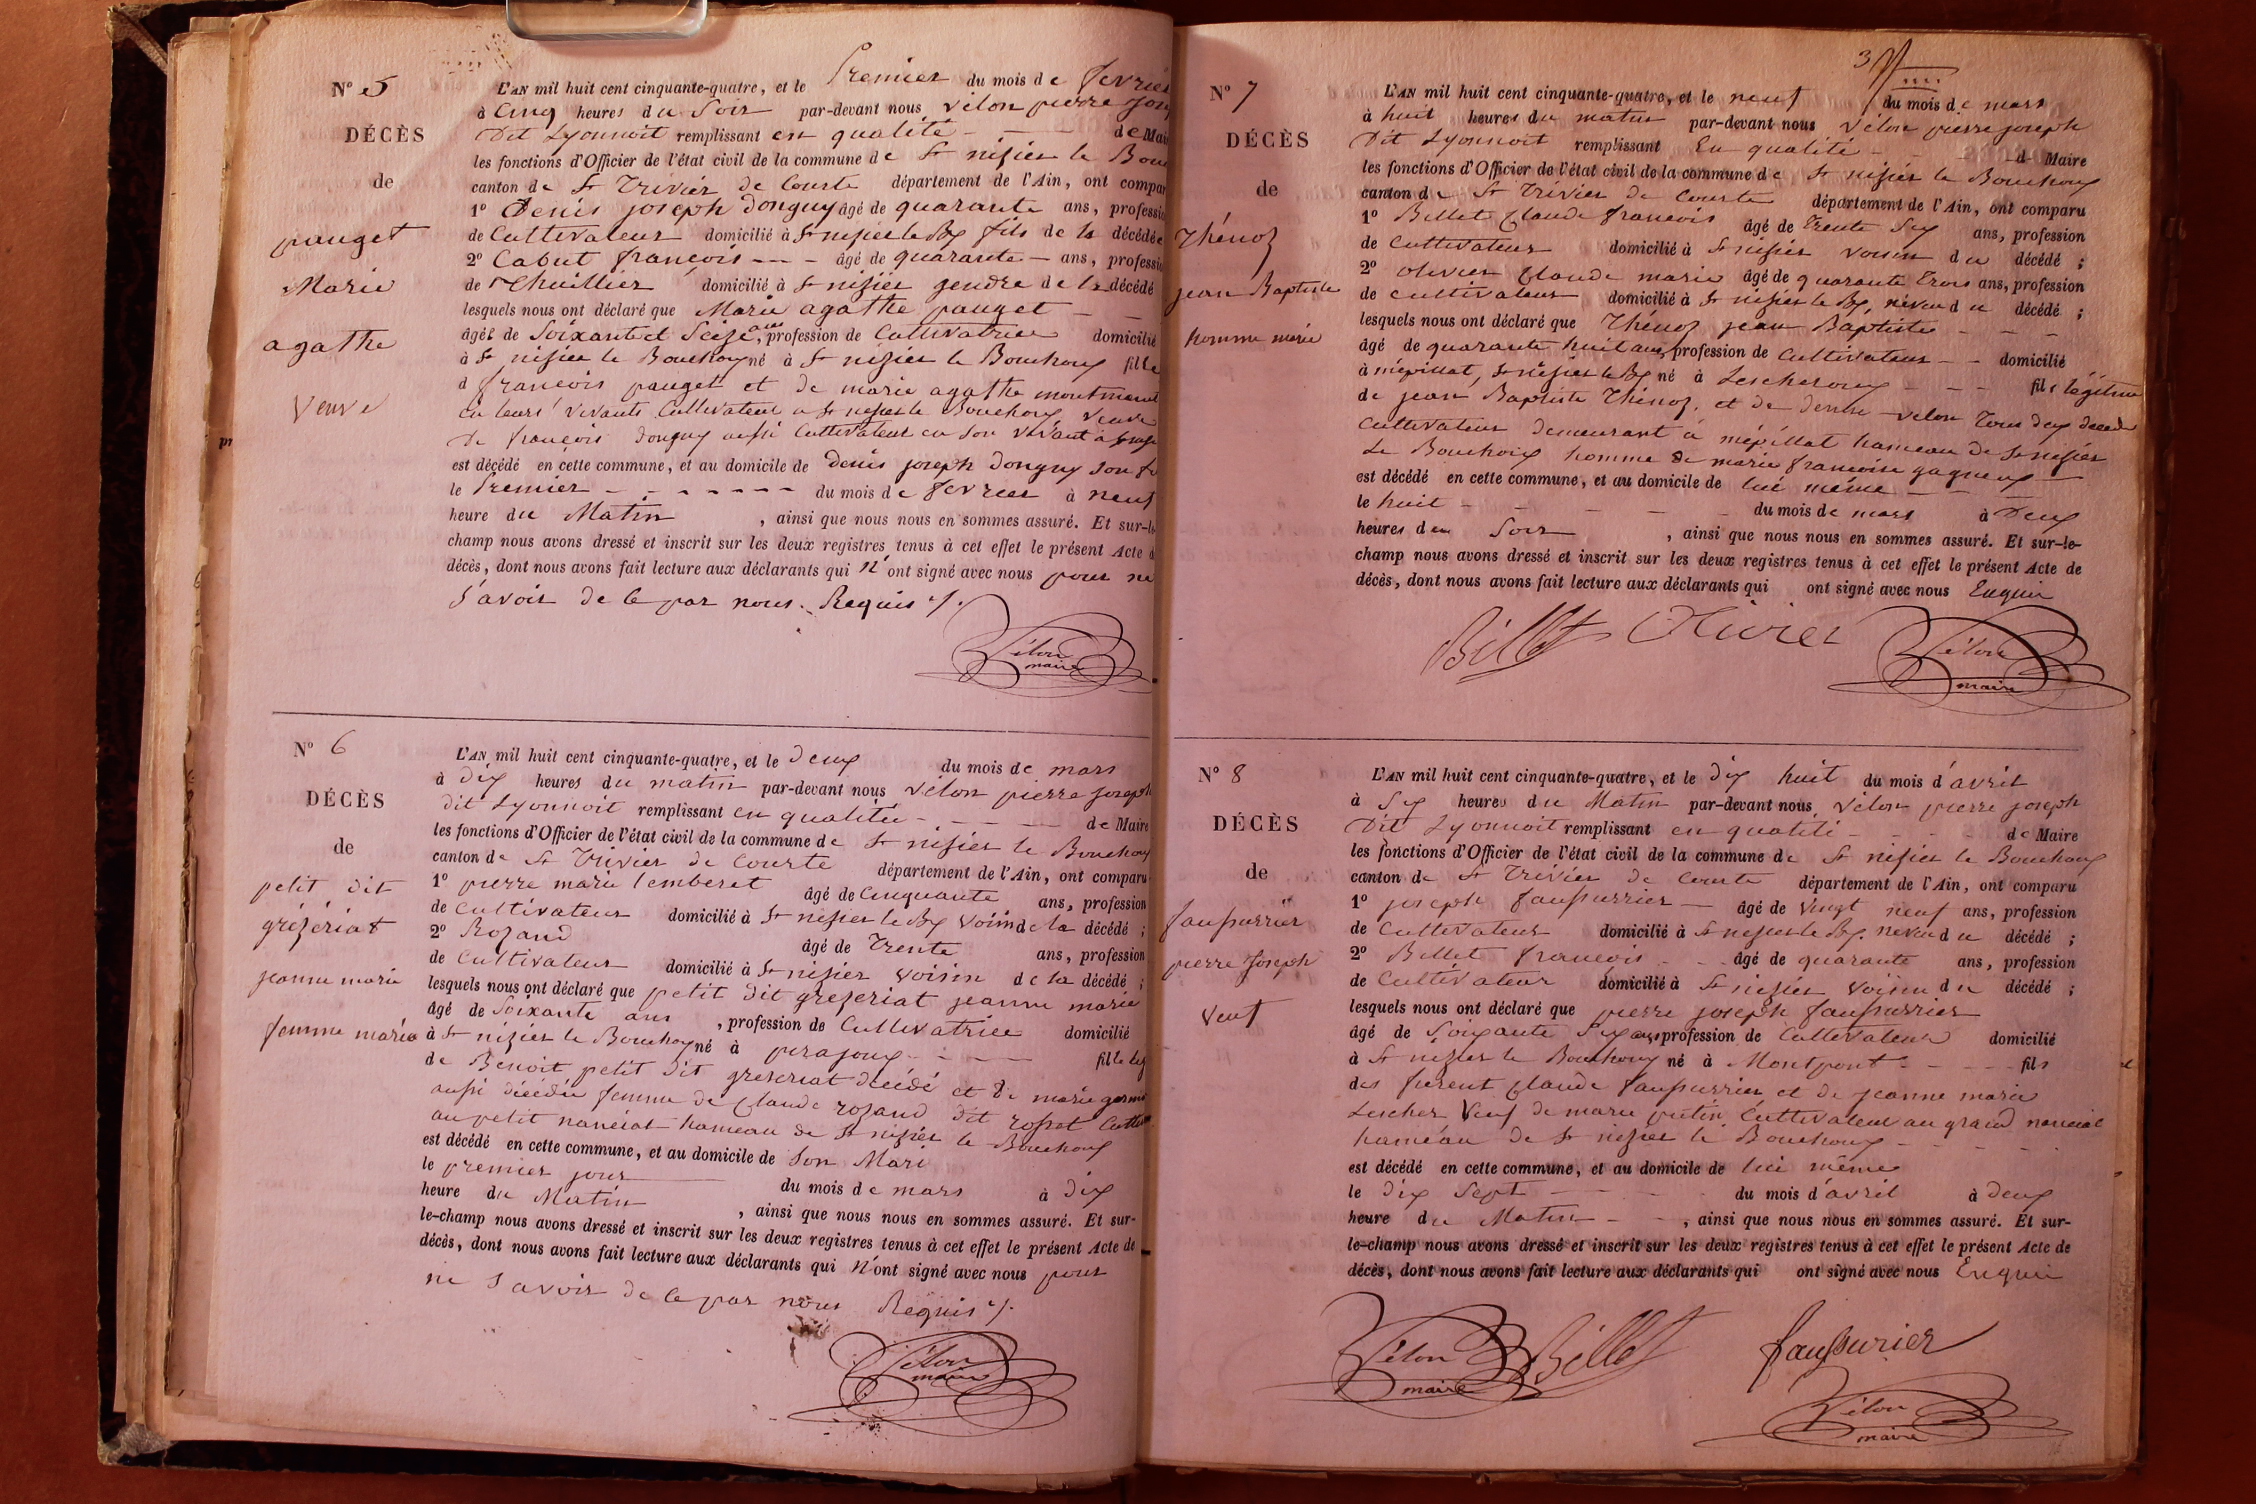 N° 5
DÉCÈS
de
pauget
Marie
agathe
Veuve
L'AN mil huit cent cinquante-quatre, et le Premier du mois de fevrier
à Cinq heures du Soir par-devant nous vélon pierre
Dit Lyonnoit remplissant en qualité - - de Mai
les fonctions d'Officier de l'état civil de la commune de St nisier le Bou
canton de St Trivier de Courte département de l'Ain, ont compar
1° Denis joseph donguy âgé de quarante ans, professi
de Cultivateur domicilié à St nisier le Bx fils de la décédée
2° Cabut francois - - - âgé de quarante - ans, professi
de Thuillier domicilié à St nisier gendre de la décédé
lesquels nous ont déclaré que Marie agathe pauget - -
âgée de Soixante et Seize ans, profession de Cultivatrice domicilié
à St nisier le Bouchoux né à St nizier le Bouchoux fille
d francois pauget et de marie agathe
en leurs vivants Cultivateur a St nisier le Bouchoux, Veuve
De francois donguy aussi Cultivateur en Son vivant a
est décédé en cette commune, et au domicile de Denis joseph Donguy son
le Premier - - - - - - - du mois de fevrier à neuf
heure du Matin , ainsi que nous nous en sommes assuré. Et sur-le
champ nous avons dressé et inscrit sur les deux registres tenus à cet effet le présent Acte d
décès, dont nous avons fait lecture aux déclarants qui n'ont signé avec nous pour ne
Savoir de ce par nous. Requis ./.
Vélon
maire
N° 6
DÉCÈS
de
petit dit
grézériat
jeanne marie
femme mariée
L'AN mil huit cent cinquante-quatre, et le deux du mois de mars
à dix heures du matin par-devant nous vélon pierre joseph
dit Lyonnoit remplissant en qualitée - - - de Maire
les fonctions d'Officier de l'état civil de la commune de St nisier le Bouchoux
canton de St Trivier de Courte département de l'Ain, ont comparu
1° pierre marie lemberet âgé de Cinquante ans, profession
de Cultivateur domicilié à St nisier le Bx voisin de la décédé ;
2° Rozand âgé de Trente ans, profession
de Cultivateur domicilié à St nisier voisin de la décédé ;
lesquels nous ont déclaré que petit dit grezeriat jeanne marie
âgé de Soixante ans , profession de Cultivatrice domicilié
à St nizier le Bouchoux né à perajoux - - - fille leg
de Benoit petit dit grezeriat décédé et de marie
aussi décédée femme de Claude rozand dit rosset
au petit nanciat hameau de St nisier le Bouchoux
est décédé en cette commune, et au domicile de Son Mari
le premier jour du mois de mars à dix
heure du Matin , ainsi que nous nous en sommes assuré. Et sur-
le-champ nous avons dressé et inscrit sur les deux registres tenus à cet effet le présent Acte de
décès, dont nous avons fait lecture aux déclarants qui n'ont signé avec nous pour
ne Savoir de ce par nous Requis ./.
Vélon
maire
3
N° 7
DÉCÈS
de
Thénoz
jean Baptiste
homme marié
L'AN mil huit cent cinquante-quatre, et le neuf du mois de mars
à huit heures du matin par-devant nous Vélon pierre joseph
Dit Lyonnoit remplissant En qualité - - de Maire
les fonctions d'Officier de l'état civil de la commune de St nisier le Bouchoux
canton de St Trivier de Courte département de l'Ain, ont comparu
1° Billet Claude francois âgé de Trente Six ans, profession
de Cultivateur domicilié à St nisier voisin du décédé ;
2° olivier Claude marie âgé de quarante trois ans, profession
de cultivateur domicilié à St nisier le Bx, neveu du décédé ;
lesquels nous ont déclaré que Thénoz jean Baptiste - - -
âgé de quarante huit ans, profession de Cultivateur - - domicilié
à mépillat, St nisier le Bx né à Lescheroux - - - fils légitime
de jean Baptiste Thénoz, et de denise vélon Tous deux
Cultivateur demeurant à mépillat hameau de St nisier
Le Bouchoux homme de marie francoise gagneux
est décédé en cette commune, et au domicile de lui même - -
le huit - - - - - du mois de mars à Deux
heures du Soir , ainsi que nous nous en sommes assuré. Et sur-le-
champ nous avons dressé et inscrit sur les deux registres tenus à cet effet le présent Acte de
décès, dont nous avons fait lecture aux déclarants qui ont signé avec nous Enquis
Billet Olivier Vélon
maire
N° 8
DÉCÈS
de
faussurrier
pierre joseph
Veuf
L'AN mil huit cent cinquante-quatre, et le dix huit du mois d'avril
à Six heures du Matin par-devant nous Vélon pierre joseph
Dit Lyonnoit remplissant en qualité - - - de Maire
les fonctions d'Officier de l'état civil de la commune de St nisier le Bouchoux
canton de St Trivier de Courte département de l'Ain, ont comparu
1° joseph faussurrier - âgé de Vingt neuf ans, profession
de Cultivateur domicilié à St nisier le Bx. neveu du décédé ;
2° Billet francois - - âgé de quarante ans, profession
de Cultivateur domicilié à St nisier voisin du décédé ;
lesquels nous ont déclaré que pierre joseph faussurrier
âgé de Soixante Six ans profession de Cultivateur domicilié
à St nizier le Bouchoux né à Montpont - - - - fils
des furent Claude faussurrier et de jeanne marie
Lescher Veuf de marie putin Cultivateur au grand nanciat
hameau de St nizier le Bouchoux - - - -
est décédé en cette commune, et au domicile de lui même
le dix Sept - - - - du mois d'avril à deux
heure du Matin - - , ainsi que nous nous en sommes assuré. Et sur-
le-champ nous avons dressé et inscrit sur les deux registres tenus à cet effet le présent Acte de
décès, dont nous avons fait lecture aux déclarants qui ont signé avec nous Enquis
Vélon Billet faussurier
maire
Vélon
maire